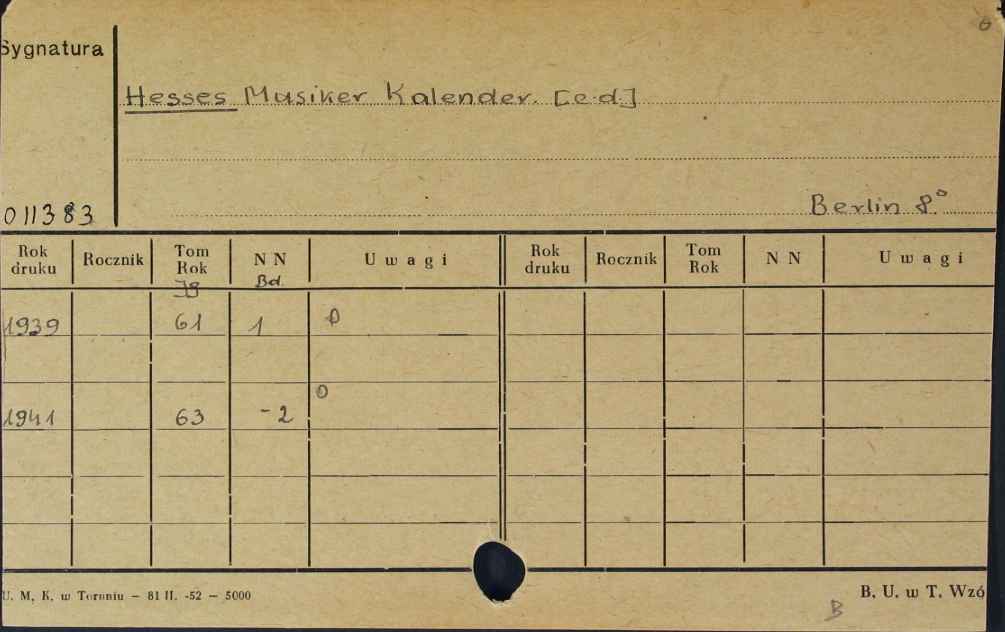 6
Sygnatura
Hesses Musiker Kalender. [c.d.]
Berlin 8°
011383
Rok druku Rocznik Tom Rok N N Uwagi Rok druku Rocznik Tom Rok N N Uwagi
Jg Bd.
1939 61 1
1941 63 -2
U. M. K. w Toruniu — 81 II. -52 — 5000 B. U. w T. Wzó
B